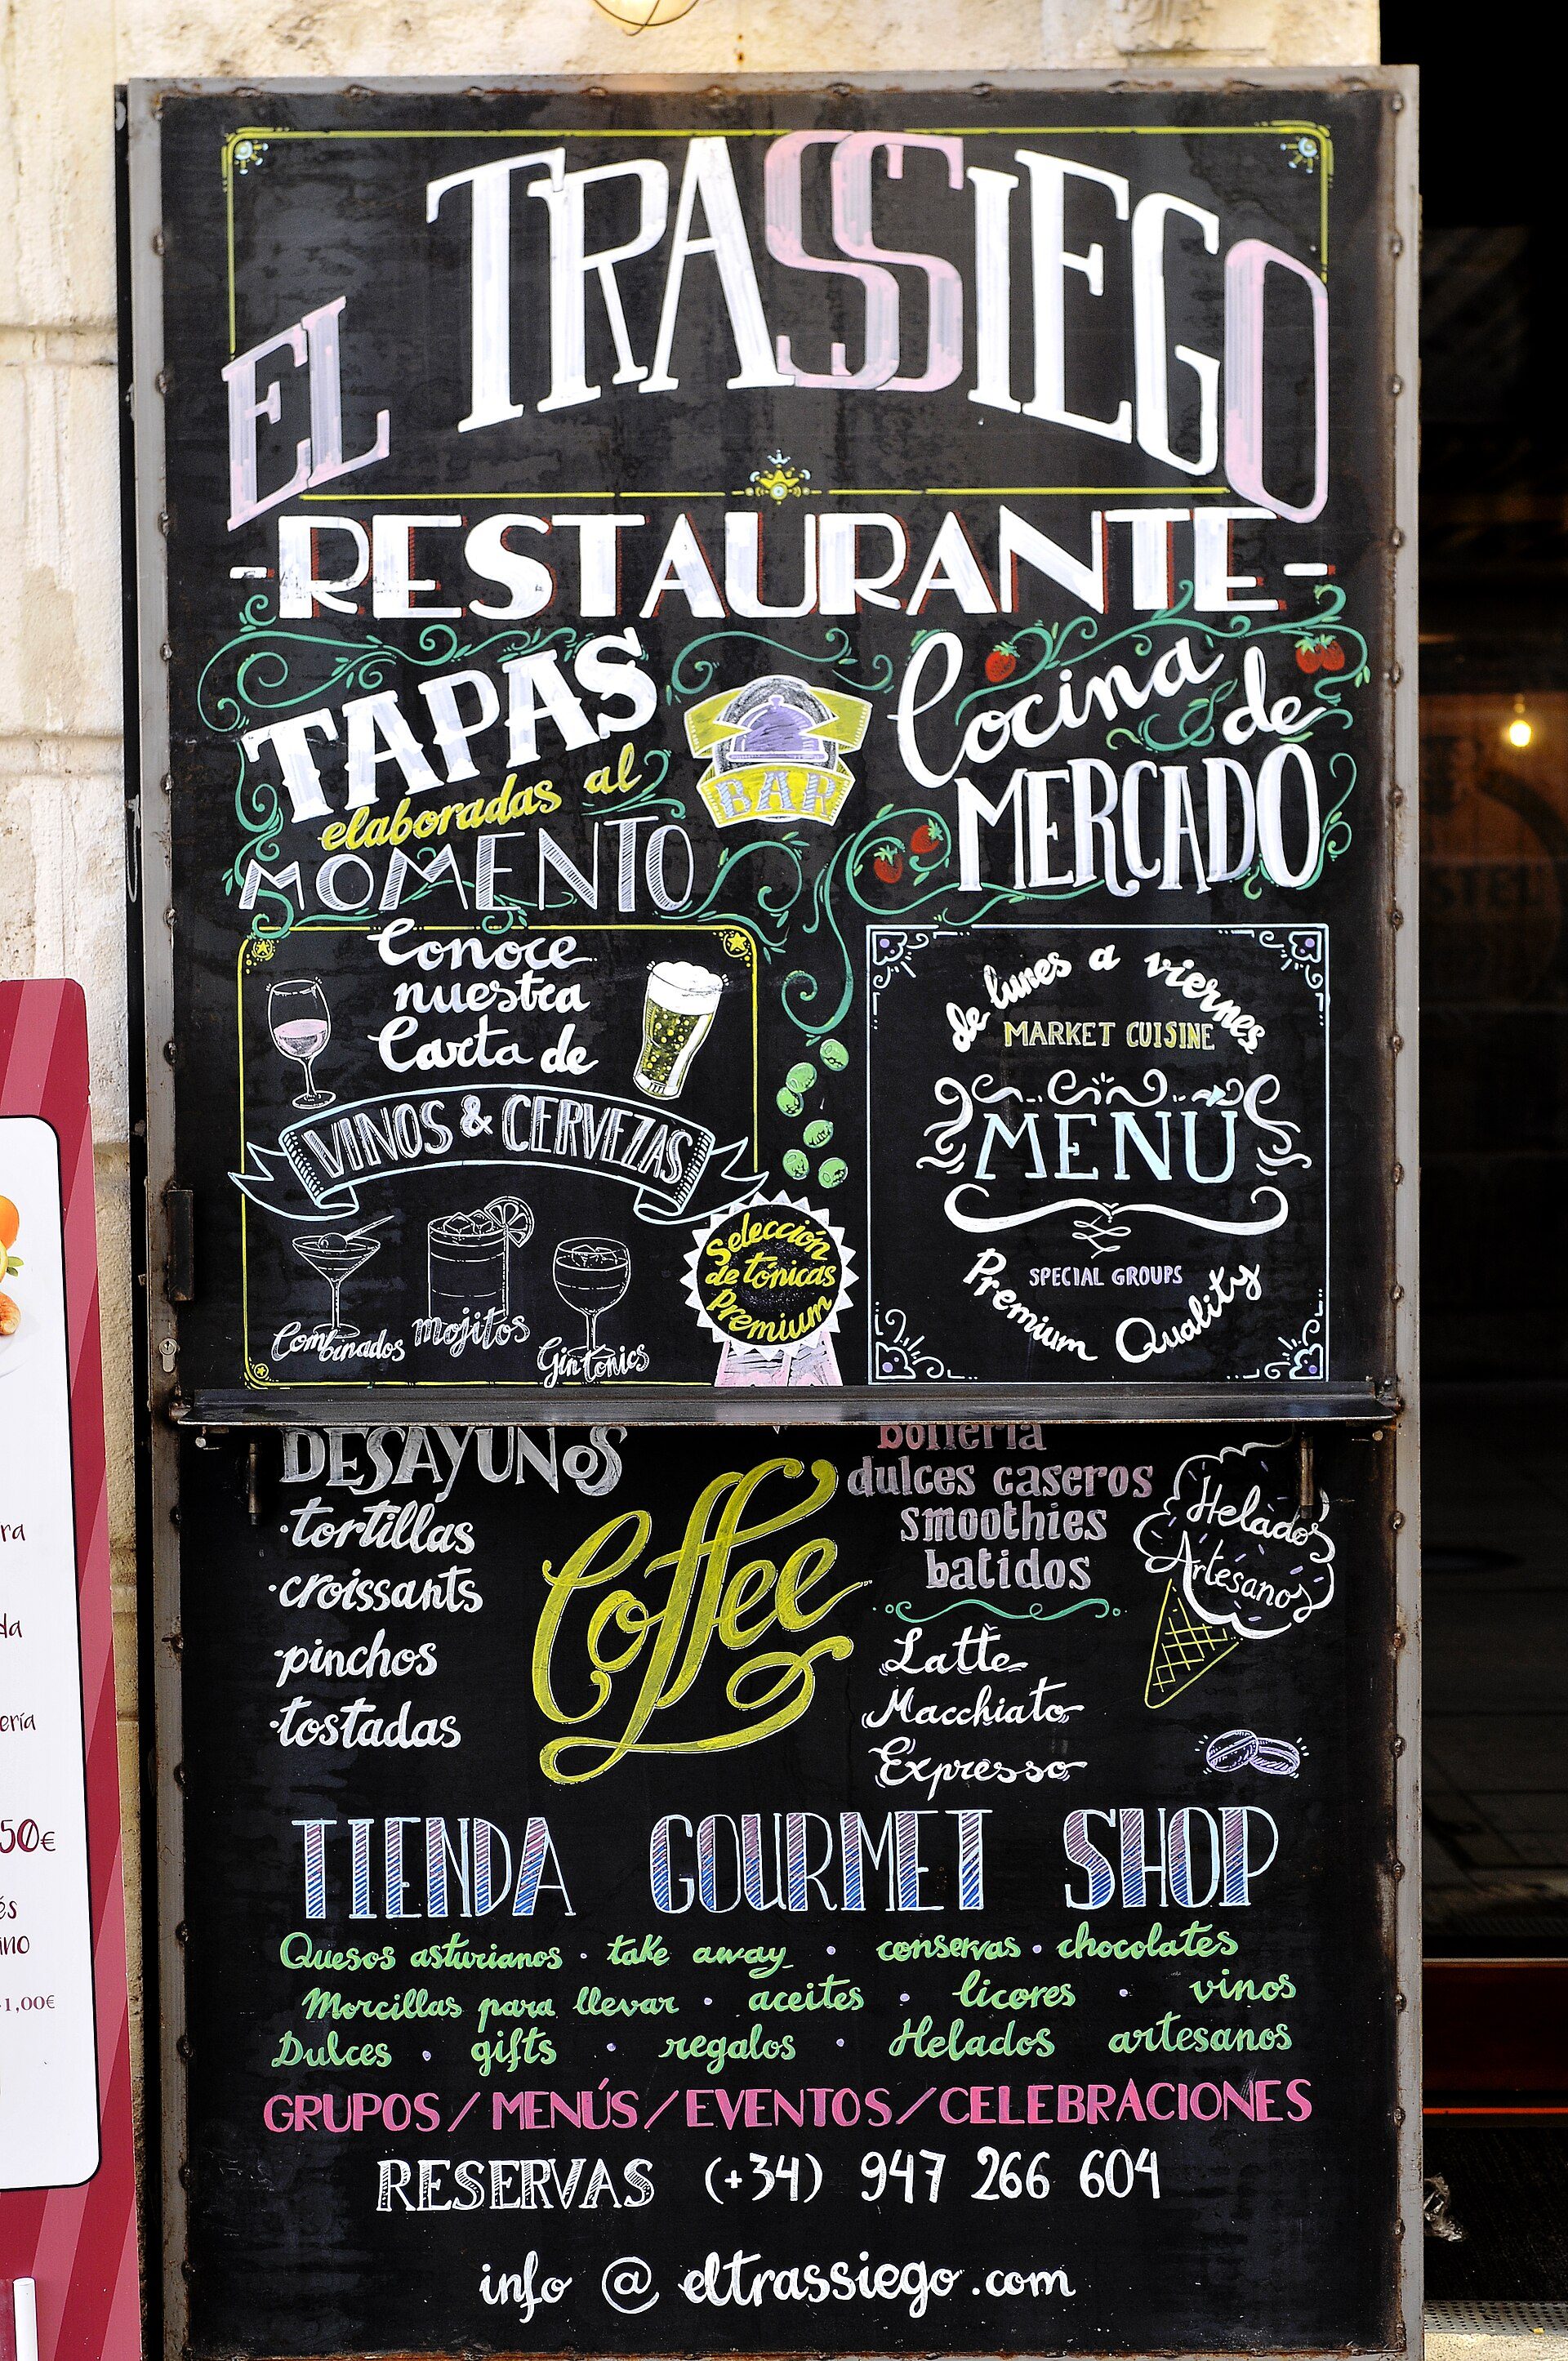 EL TRASSIEGO
-RESTAURANTE-
TAPAS
elaboradas al
MOMENTO
BAR
Cocina de
MERCADO
Conoce
nuestra
Carta de
VINOS & CERVEZAS
Combinados
Mojitos
Gin tonics
Selección
de tónicas
Premium
de lunes a viernes
MARKET CUISINE
MENÚ
SPECIAL GROUPS
Premium Quality
DESAYUNOS
·tortillas
·croissants
·pinchos
·tostadas
Coffee
bollería
dulces caseros
smoothies
batidos
Latte
Macchiato
Expresso
Helados
Artesanos
TIENDA GOURMET SHOP
Quesos asturianos · take away · conservas · chocolates
Morcillas para llevar · aceites · licores · vinos
Dulces · gifts · regalos · Helados artesanos
GRUPOS / MENÚS / EVENTOS / CELEBRACIONES
RESERVAS (+34) 947 266 604
info @ eltrassiego.com
50€
1,00€